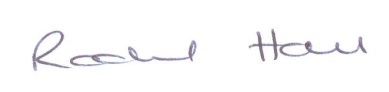 Rachel Hall